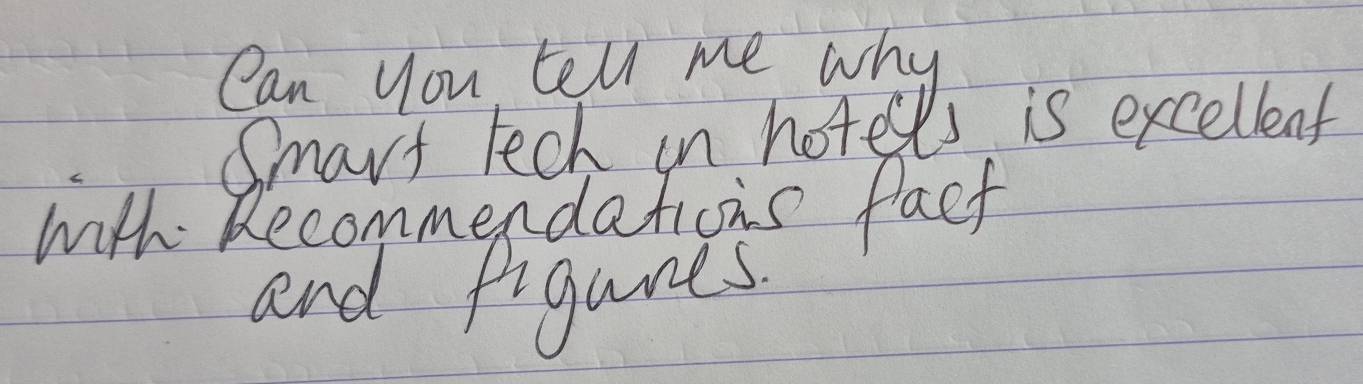 Can you tell me why
Smart tech in hotels is excellent
with Recommendations fact
and figures.